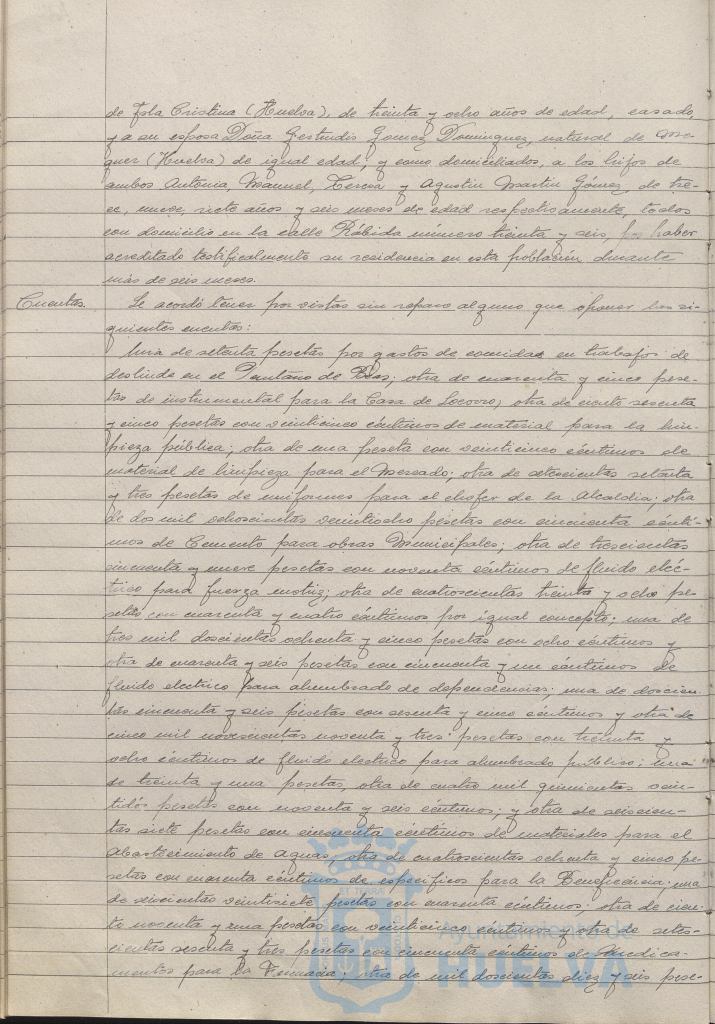 de Isla Cristina (Huelva), de treinta y ocho años de edad, casado,
y a su esposa Doña Gertrudis Gomez Dominguez, natural de
guer (Huelva) de igual edad, y como domiciliados, a los hijos de
ambos Antonia, Manuel, Teresa y Agustin Martin Gómez, de tre-
ce, nueve, siete años y seis meses de edad respectivamente, todos
con domicilio en la calle Rábida número treinta y seis, por haber
acreditado testificalmente su residencia en esta población durante
más de seis meses.
Cuentas. Se acordó tener por vistas sin reparo alguno que oponer las si-
guientes cuentas:
Una de setenta pesetas por gastos de comidas en trabajos de
deslinde en el Pantano de ; otra de cuarenta y cinco pese-
tas de instrumental para la Casa de Socorro; otra de ciento sesenta
y cinco pesetas con veinticinco céntimos de material para la lim-
pieza pública; otra de una peseta con veinticinco céntimos de
material de limpieza para el Mercado; otra de setecientas setenta
y tres pesetas de uniformes para el chofer de la Alcaldia; otra
de dos mil ochocientas veintiocho pesetas con cincuenta cénti-
mos de Cemento para obras Municipales; otra de trescientas
cincuenta y nueve pesetas con noventa céntimos de fluido eléc-
trico para fuerza motriz; otra de cuatroscientas treinta y ocho pe-
setas con cuarenta y cuatro céntimos por igual concepto; una de
tres mil doscientas ochenta y cinco pesetas con ocho céntimos y
otra de cuarenta y seis pesetas con cincuenta y un céntimos de
fluido electrico para alumbrado de dependencias; una de doscien-
tas cincuenta y seis pesetas con sesenta y cinco céntimos y otra de
cinco mil novescientas noventa y tres pesetas con treinta y
ocho céntimos de fluido electrico para alumbrado público; una
de treinta y una pesetas, otra de cuatro mil quinientas vein-
tidos pesetas con noventa y seis céntimos; y otra de seiscien-
tas siete pesetas con cincuenta céntimos de materiales para el
Abastecimiento de Aguas; otra de cuatroscientas ochenta y cinco pe-
setas con cuarenta céntimos de especificos para la Beneficencia; una
de seiscientas veintisiete pesetas con cuarenta céntimos; otra de cien-
to noventa y una pesetas con veinticinco céntimos y otra de sete-
cientas sesenta y tres pesetas con cincuenta céntimos de Medica-
mentos para la Farmacia; otra de mil doscientas diez y seis pese-
Ayuntamiento de
HUELVA